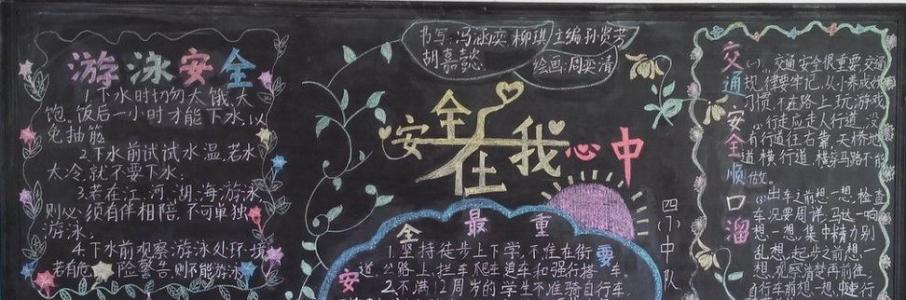 游泳安全
1.下水时切勿太饿、太
饱。饭后一小时才能下水,以
免抽筋
2.下水前试试水温,若水
太冷,就不要下水;
3.若在江、河、湖、海游泳,
则必须有伴相陪,不可单独
游泳;
4.下水前观察游泳处环境,
若有危险警告,则不能游泳
书写:冯涵奕 柳琪 主编:孙贤芳
胡嘉懿 绘画:周奕清
安全在我心中
四(1)中队
安全最重要
1.坚持徒步上下学,不准在街
道、公路上,拦车爬车追车和强行搭车。
2.不满12周岁的学生不准骑自行车。
交通安全顺口溜
(一)、交通安全很重要,交通
规律要牢记,从小养成好
习惯,不在路上玩游戏
行走应走人行道,没
有行道往右靠,天桥地
道横行道,横穿马路不能
做。
出车之前想一想,检查
车况要周详,马达一响
想一想,集中精力别
乱想,起步之前想一
想,观察清楚再前往,
自行车前想一想,中速行